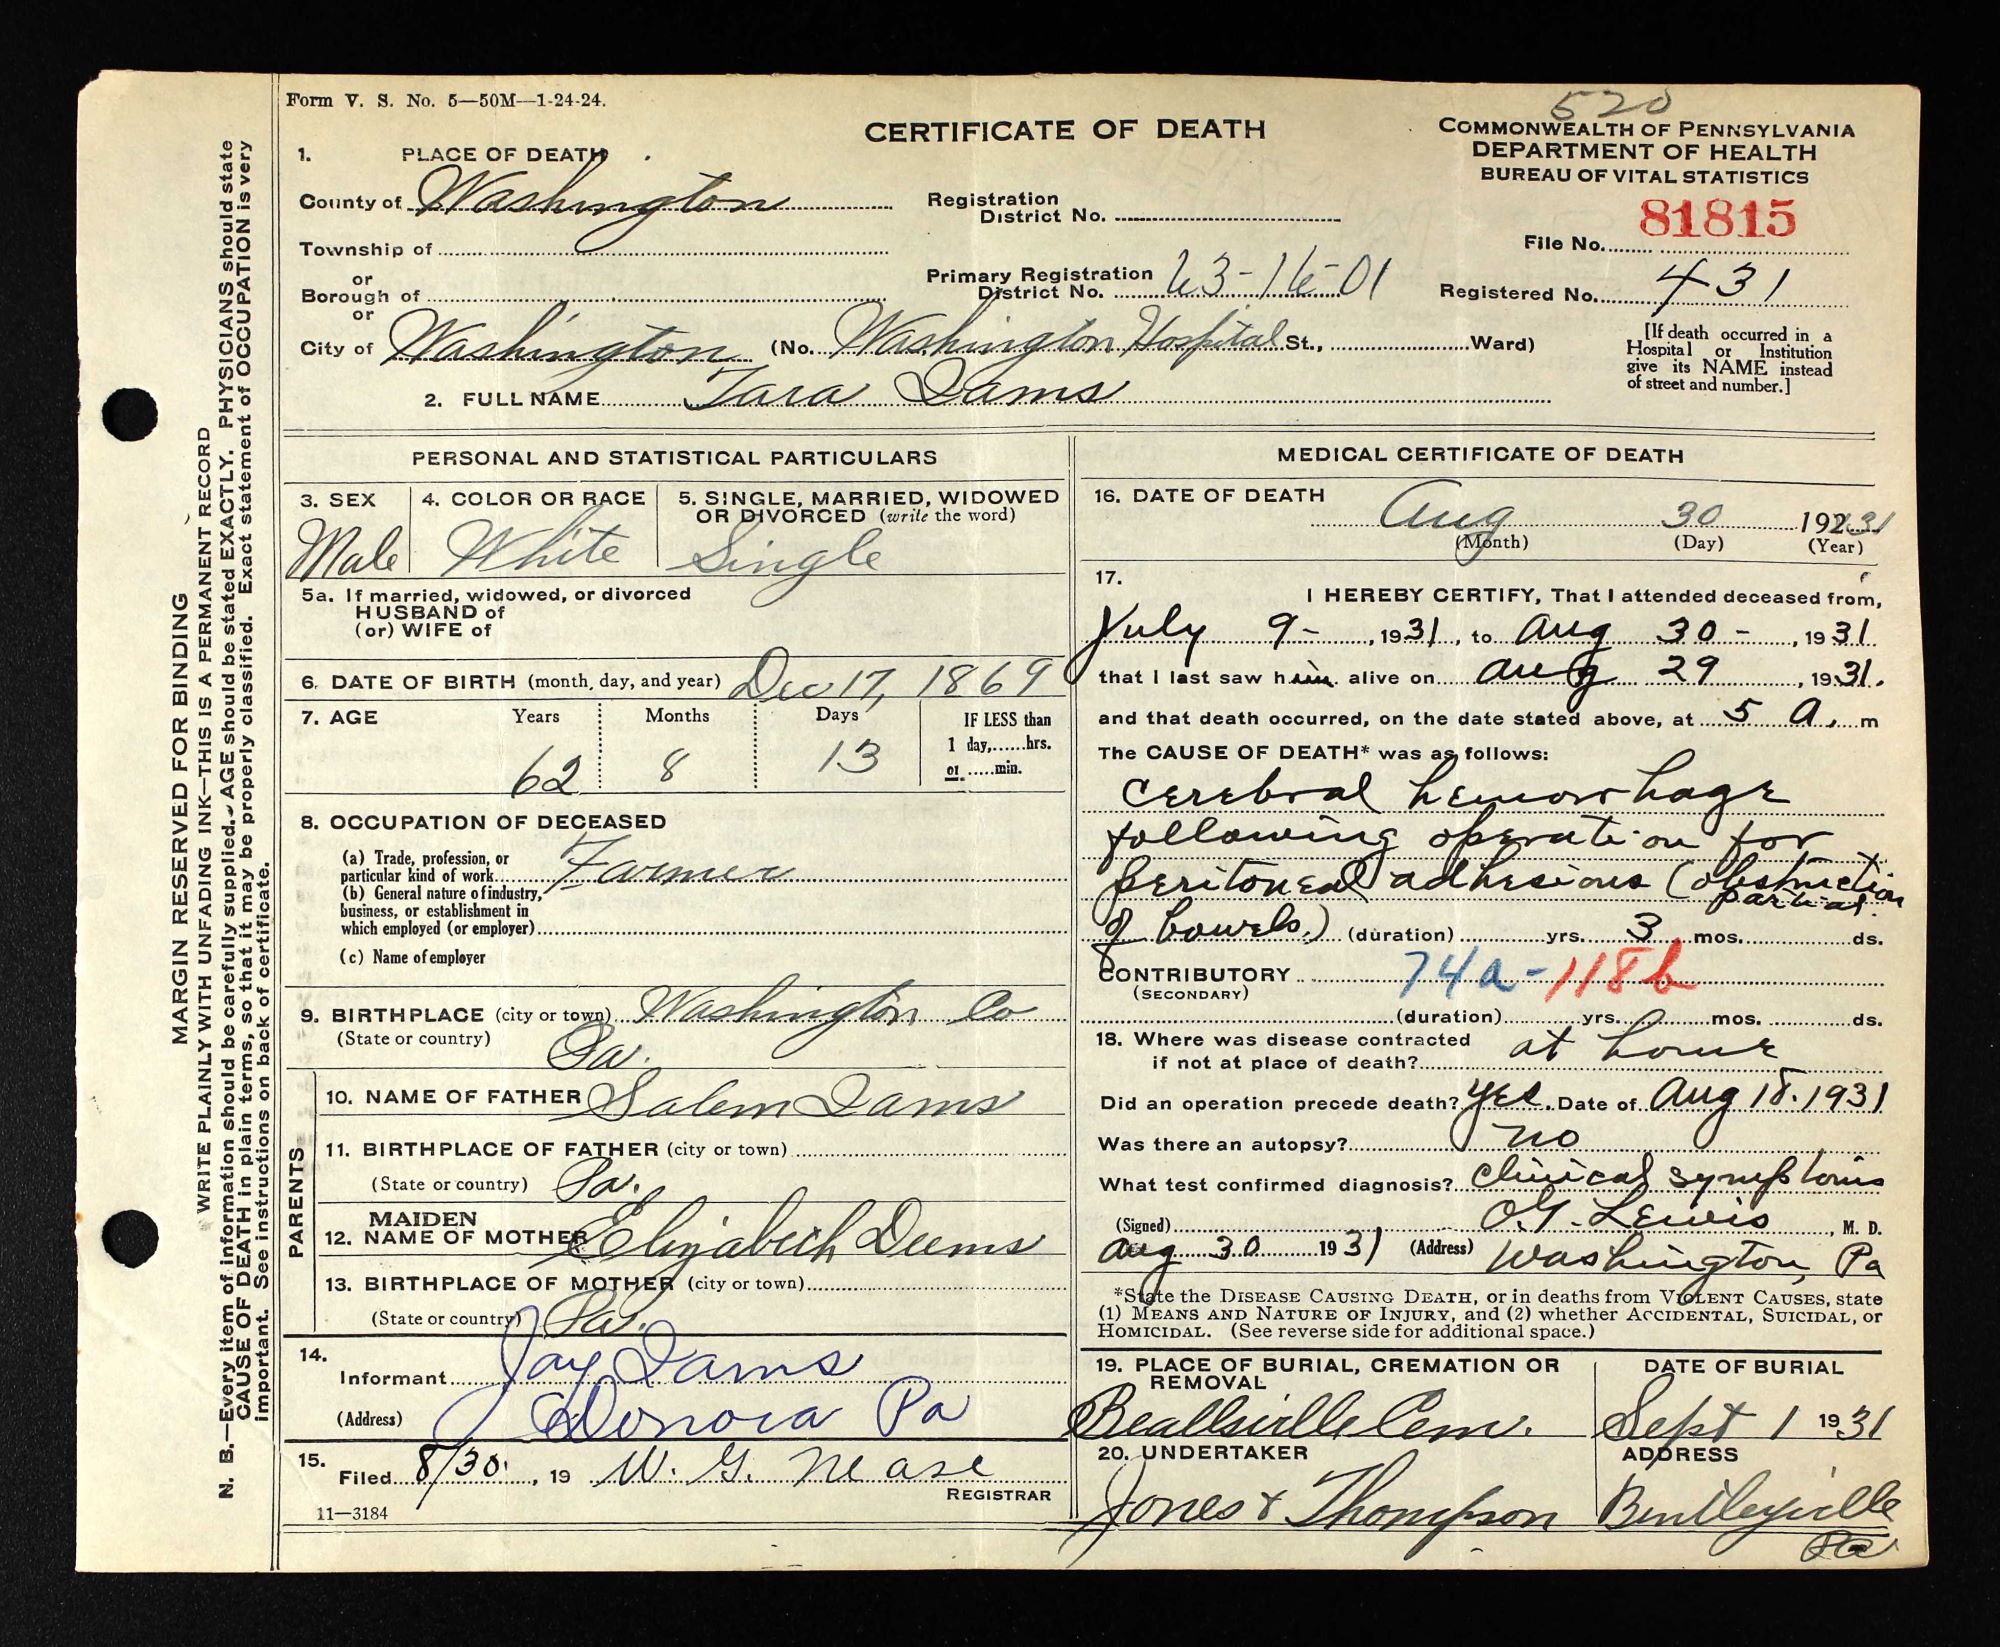 Form V. S. No. 5—50M—1-24-24.
520
CERTIFICATE OF DEATH
COMMONWEALTH OF PENNSYLVANIA
DEPARTMENT OF HEALTH
BUREAU OF VITAL STATISTICS
1. PLACE OF DEATH
County of Washington
Registration District No.
81815
File No.
Township of
or
Borough of
or
Primary Registration District No. 63-16-01
Registered No. 431
City of Washington (No. Washington Hospital St., Ward)
[If death occurred in a
Hospital or Institution
give its NAME instead
of street and number.]
2. FULL NAME Tara Iams
PERSONAL AND STATISTICAL PARTICULARS
3. SEX
Male
4. COLOR OR RACE
White
5. SINGLE, MARRIED, WIDOWED
OR DIVORCED (write the word)
Single
5a. If married, widowed, or divorced
HUSBAND of
(or) WIFE of
6. DATE OF BIRTH (month, day, and year) Dec 17, 1869
7. AGE Years Months Days
62 8 13
IF LESS than
1 day,......hrs.
or ......min.
8. OCCUPATION OF DECEASED
(a) Trade, profession, or
particular kind of work Farmer
(b) General nature of industry,
business, or establishment in
which employed (or employer)
(c) Name of employer
9. BIRTHPLACE (city or town) Washington Co
(State or country) Pa.
PARENTS
10. NAME OF FATHER Salem Iams
11. BIRTHPLACE OF FATHER (city or town)
(State or country) Pa.
12. MAIDEN NAME OF MOTHER Elizabeth Deems
13. BIRTHPLACE OF MOTHER (city or town)
(State or country) Pa.
14.
Informant Jay Iams
(Address) Donora Pa
15.
Filed 8/30, 19 W. G. Nease
REGISTRAR
11—3184
MEDICAL CERTIFICATE OF DEATH
16. DATE OF DEATH
Aug 30 192 31
(Month) (Day) (Year)
17.
I HEREBY CERTIFY, That I attended deceased from,
July 9 - , 1931, to Aug 30 - , 1931
that I last saw him alive on Aug 29 , 1931.
and that death occurred, on the date stated above, at 5 A. m
The CAUSE OF DEATH* was as follows:
Cerebral hemorrhage
following operation for
peritoneal adhesions (obstruction
partial
of bowels.) (duration) yrs. 3 mos. ds.
CONTRIBUTORY 74a-118b
(SECONDARY)
(duration) yrs. mos. ds.
18. Where was disease contracted
if not at place of death? at home
Did an operation precede death? Yes. Date of Aug 18. 1931
Was there an autopsy? no
What test confirmed diagnosis? Clinical symptoms
(Signed) O. G. Lewis, M. D.
Aug 30 1931 (Address) Washington, Pa
*State the DISEASE CAUSING DEATH, or in deaths from VIOLENT CAUSES, state
(1) MEANS AND NATURE OF INJURY, and (2) whether ACCIDENTAL, SUICIDAL, or
HOMICIDAL. (See reverse side for additional space.)
19. PLACE OF BURIAL, CREMATION OR
REMOVAL
Beallsville Cem.
DATE OF BURIAL
Sept 1 1931
20. UNDERTAKER
Jones & Thompson
ADDRESS
Bentleyville
Pa
MARGIN RESERVED FOR BINDING
WRITE PLAINLY WITH UNFADING INK—THIS IS A PERMANENT RECORD
N. B.—Every item of information should be carefully supplied. AGE should be stated EXACTLY. PHYSICIANS should state
CAUSE OF DEATH in plain terms, so that it may be properly classified. Exact statement of OCCUPATION is very
important. See instructions on back of certificate.